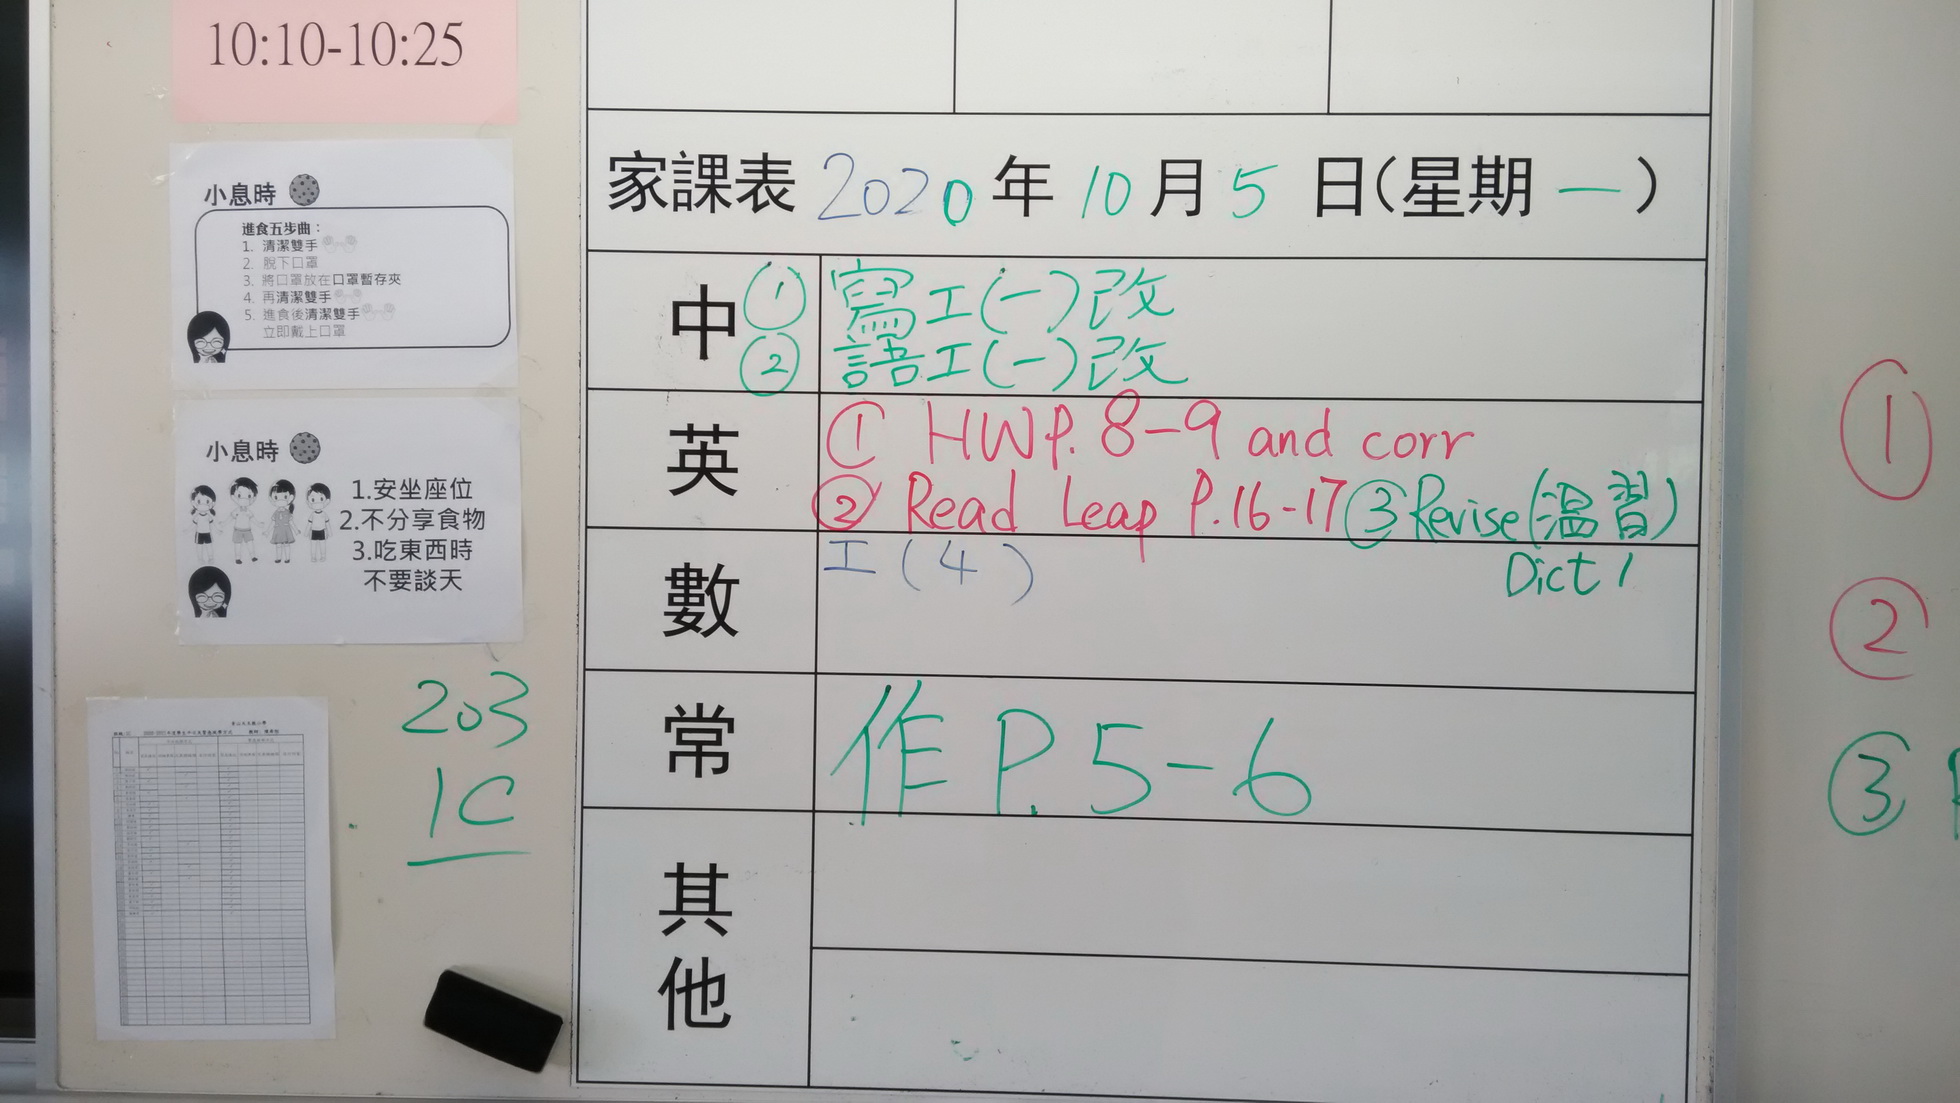 10:10-10:25
小息時
進食五步曲：
1. 清潔雙手
2. 脫下口罩
3. 將口罩放在口罩暫存夾
4. 再清潔雙手
5. 進食後清潔雙手
立即戴上口罩
小息時
1.安坐座位
2.不分享食物
3.吃東西時
不要談天
203
1C
家課表 2020 年 10 月 5 日(星期 一 )
中 ① 寫工(一)改
② 語工(一)改
英 ① HW P. 8-9 and corr
② Read Leap P.16-17 ③ Revise(溫習)
Dict 1
數 工(4)
常 作 P. 5-6
其他
①
②
③